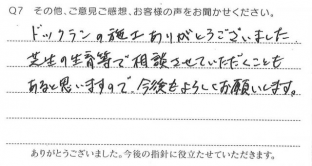 Q7 その他、ご意見ご感想、お客様の声をお聞かせください。
ドックランの施工ありがとうございました。
芝生の生育等で相談させていただくことも
あると思いますので、今後もよろしくお願いします。
ありがとうございました。今後の指針に役立たせていただきます。